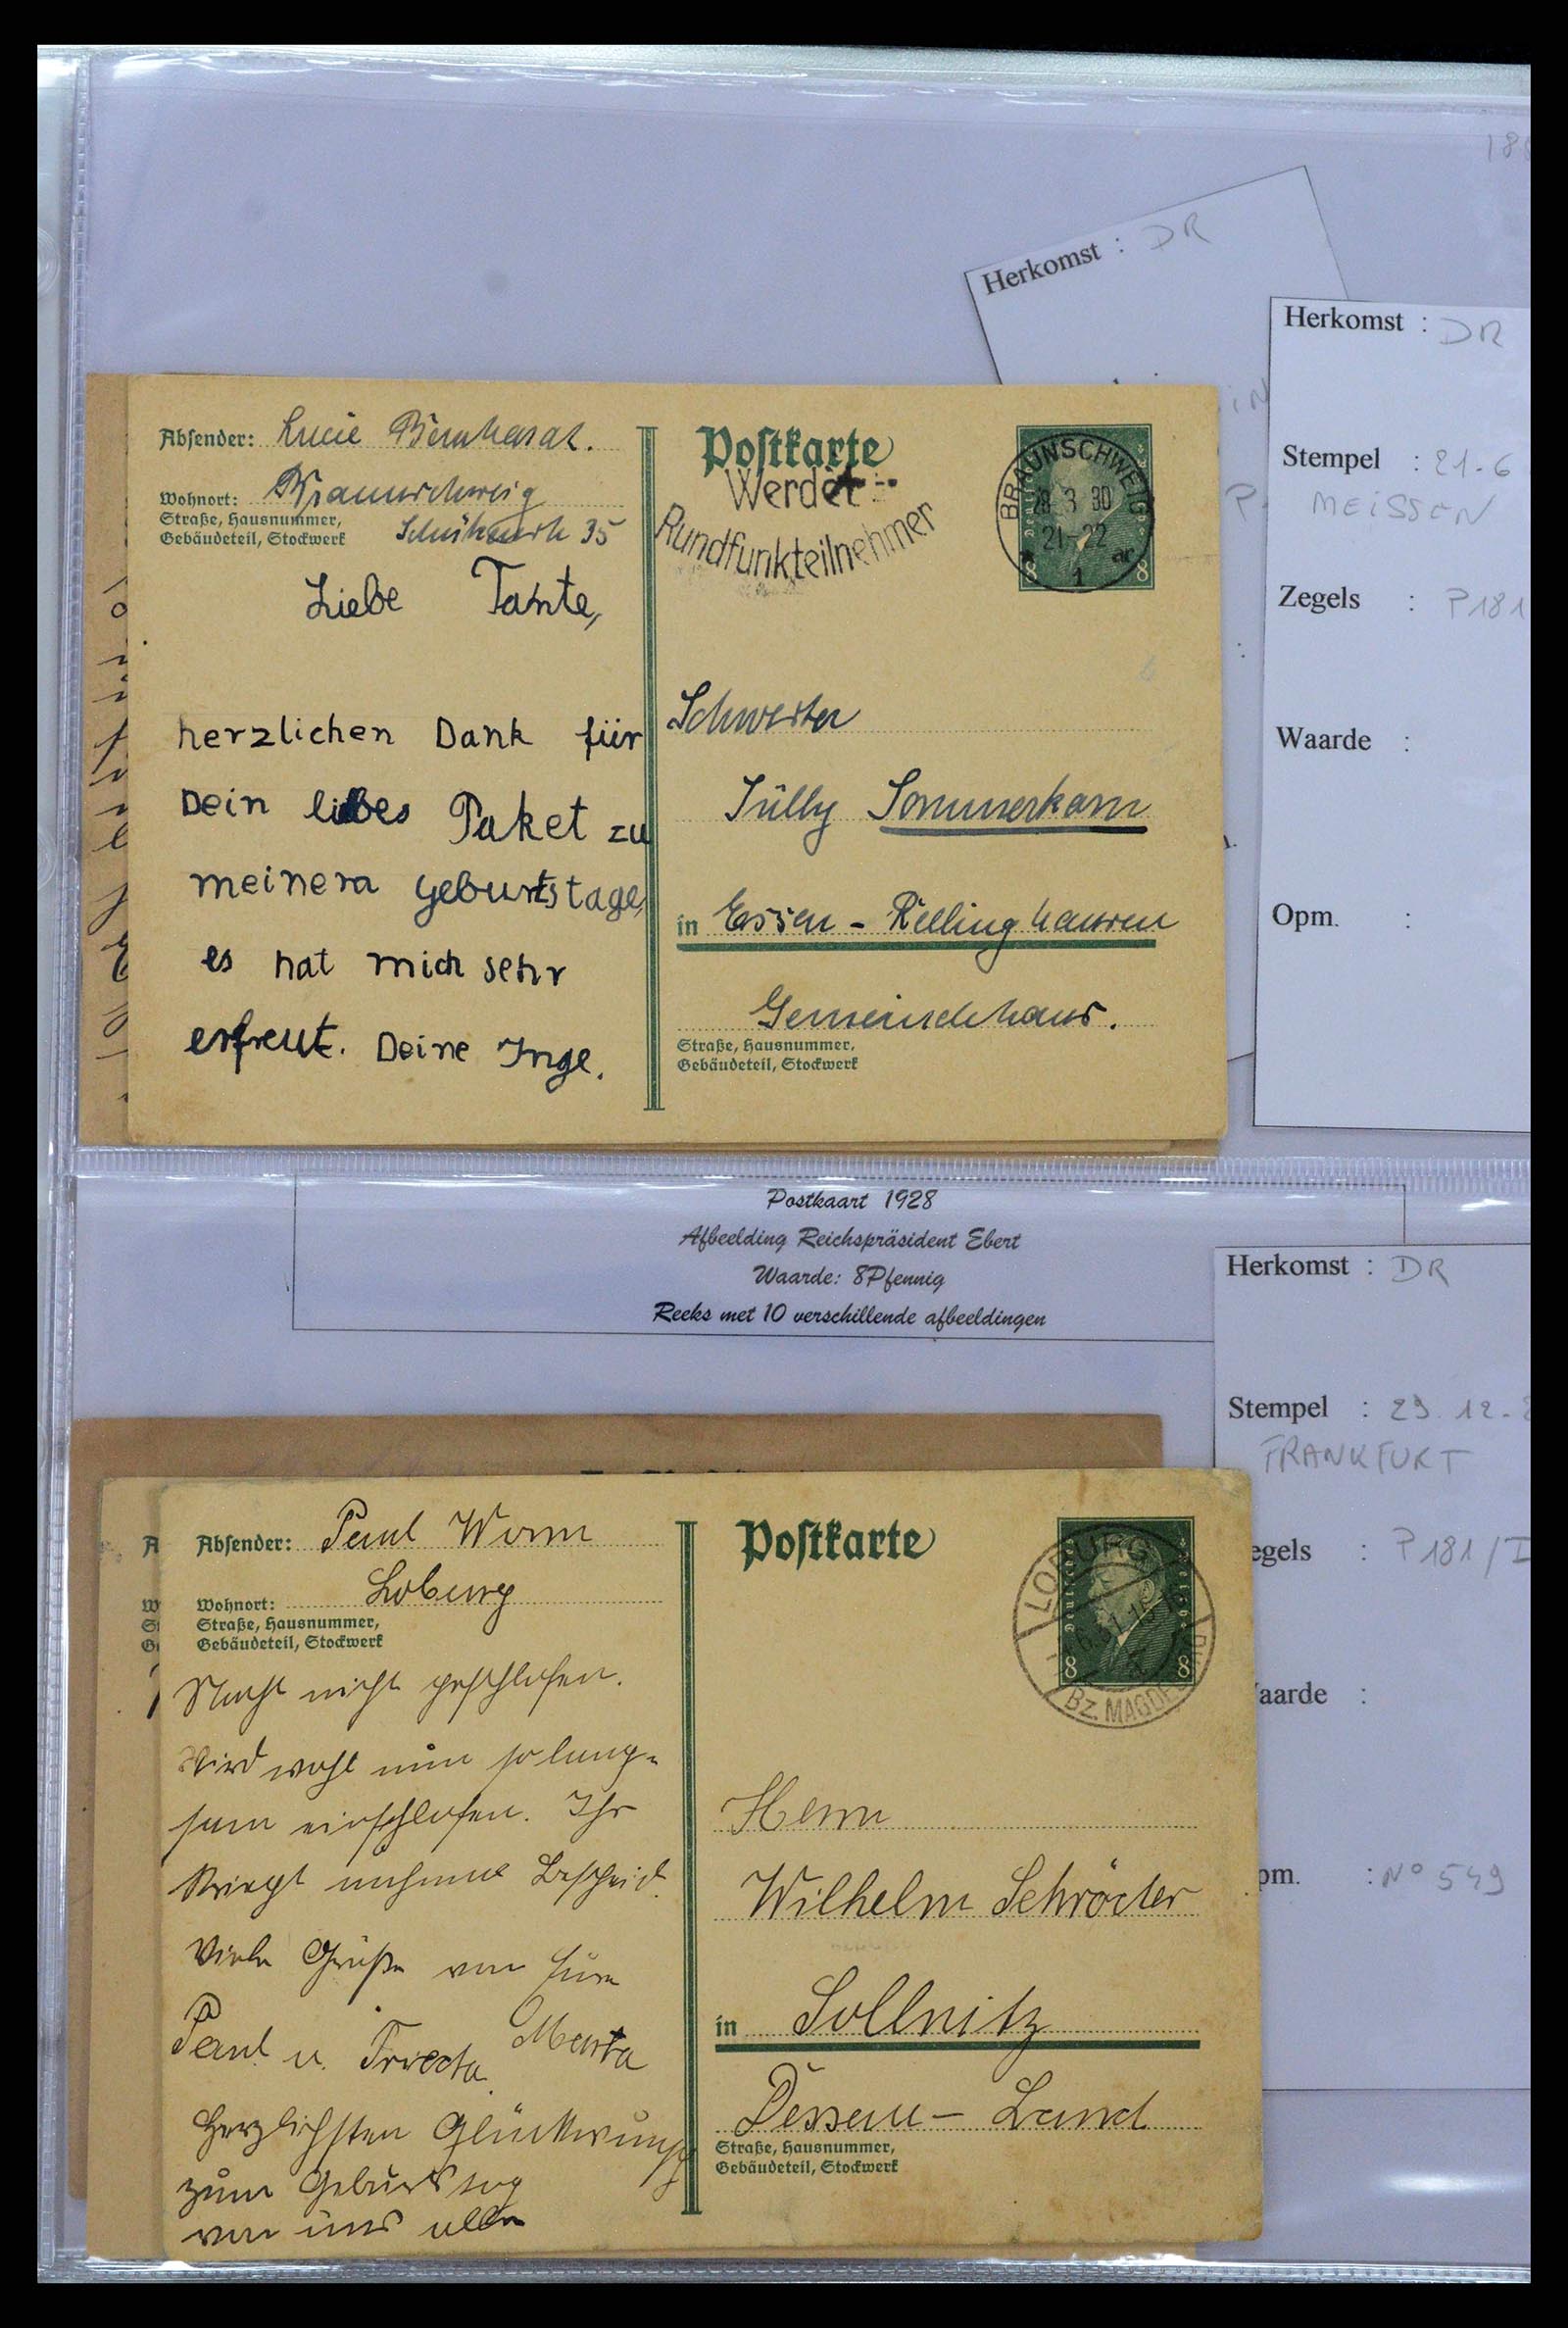 18
Herkomst : DR
Herkomst : DR
Stempel : 21-6
MEISSEN
Zegels : P181
Waarde :
Opm. :
Absender: Lucie Bernhardt.
Wohnort: Braunschweig
Straße, Hausnummer,
Gebäudeteil, Stockwerk
35
Liebe Tante,
herzlichen Dank für
Dein liebes Paket zu
meinem Geburtstage,
es hat mich sehr
erfreut. Deine Inge.
Postkarte
Werdet
Rundfunkteilnehmer
BRAUNSCHWEIG
28.3.30
21-22
ar
1
8 8
Schwester
Tülly Sommerkam
in Essen - Rellinghausen
Gemeindehaus.
Straße, Hausnummer,
Gebäudeteil, Stockwerk
Postkaart 1928
Afbeelding Reichspräsident Ebert
Waarde: 8Pfennig
Reeks met 10 verschillende afbeeldingen
Herkomst : DR
Stempel : 29.12-
FRANKFURT
egels : P181/I
aarde :
pm. : N° 549
Absender: Paul Worm
Wohnort: Loburg
Straße, Hausnummer,
Gebäudeteil, Stockwerk
Nacht nicht geschlafen.
Wird wohl nun so lang-
sam einschlafen. Ihr
kriegt nochmal Bescheid.
Viele Grüße von Eure
Paul u. Frieda Marta
Herzlichsten Glückwunsch
zum Geburtstag
von uns allen
Postkarte
LOBURG
Bz. MAGDEBURG
8 8
Herrn
Wilhelm Schröder
in Sollnitz
Dessau - Land
Straße, Hausnummer,
Gebäudeteil, Stockwerk